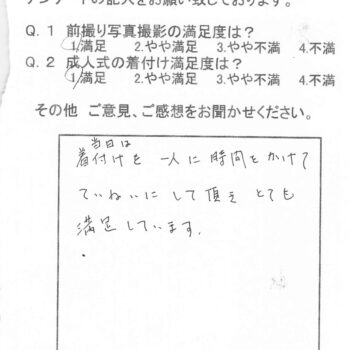 アンケートの記入をお願い致しております。
Q.1 前撮り写真撮影の満足度は?
1.満足 2.やや満足 3.やや不満 4.不満
Q.2 成人式の着付け満足度は?
1.満足 2.やや満足 3.やや不満 4.不満
その他 ご意見、ご感想をお聞かせください。
当日は
着付けを 一人に時間をかけて
ていねいにして頂き とても
満足しています.